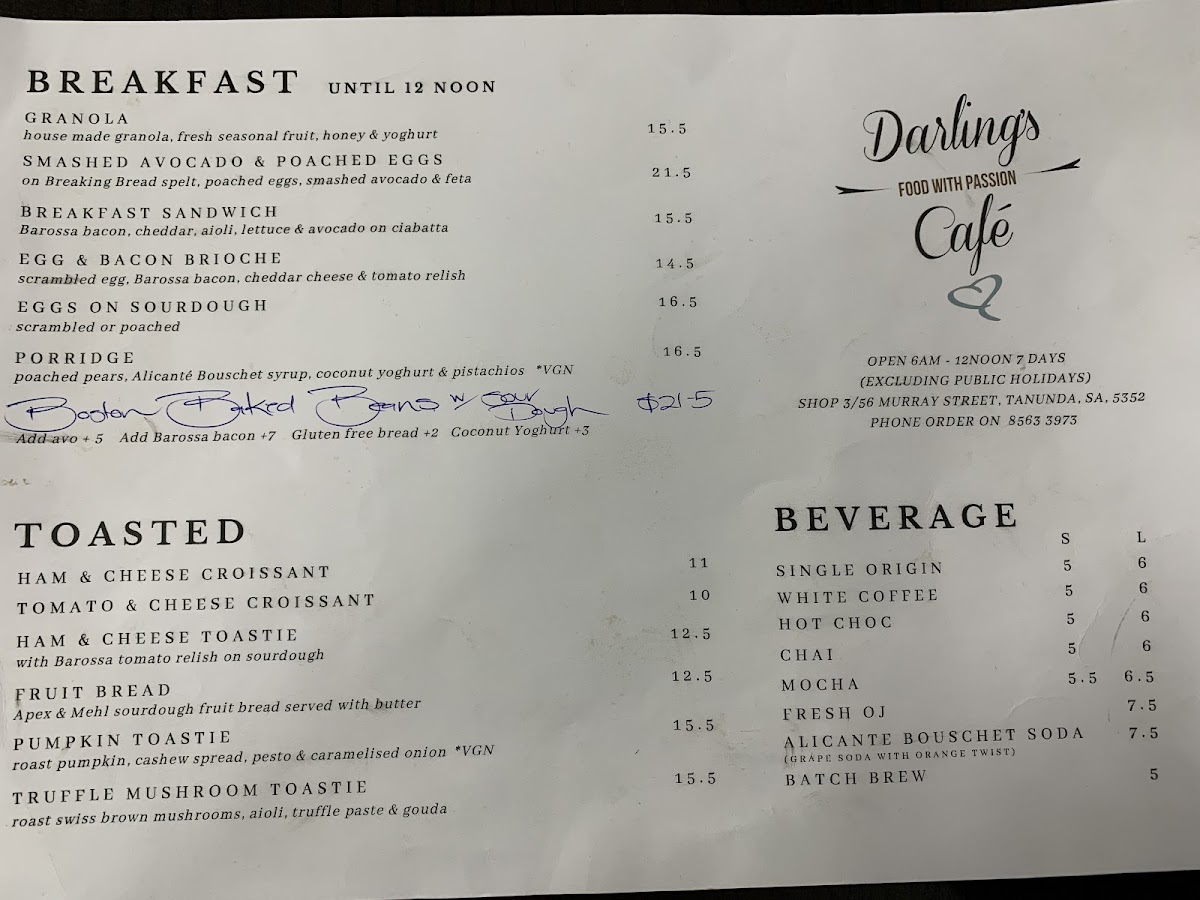 BREAKFAST UNTIL 12 NOON
GRANOLA 15.5
house made granola, fresh seasonal fruit, honey & yoghurt
SMASHED AVOCADO & POACHED EGGS 21.5
on Breaking Bread spelt, poached eggs, smashed avocado & feta
BREAKFAST SANDWICH 15.5
Barossa bacon, cheddar, aioli, lettuce & avocado on ciabatta
EGG & BACON BRIOCHE 14.5
scrambled egg, Barossa bacon, cheddar cheese & tomato relish
EGGS ON SOURDOUGH 16.5
scrambled or poached
PORRIDGE 16.5
poached pears, Alicanté Bouschet syrup, coconut yoghurt & pistachios *VGN
Boston Baked Beans w/ Sour Dough $21.5
Add avo + 5 Add Barossa bacon +7 Gluten free bread +2 Coconut Yoghurt +3
Darling's
FOOD WITH PASSION
Café
OPEN 6AM - 12NOON 7 DAYS
(EXCLUDING PUBLIC HOLIDAYS)
SHOP 3/56 MURRAY STREET, TANUNDA, SA, 5352
PHONE ORDER ON 8563 3973
TOASTED
HAM & CHEESE CROISSANT 11
TOMATO & CHEESE CROISSANT 10
HAM & CHEESE TOASTIE 12.5
with Barossa tomato relish on sourdough
FRUIT BREAD 12.5
Apex & Mehl sourdough fruit bread served with butter
PUMPKIN TOASTIE 15.5
roast pumpkin, cashew spread, pesto & caramelised onion *VGN
TRUFFLE MUSHROOM TOASTIE 15.5
roast swiss brown mushrooms, aioli, truffle paste & gouda
BEVERAGE
S L
SINGLE ORIGIN 5 6
WHITE COFFEE 5 6
HOT CHOC 5 6
CHAI 5 6
MOCHA 5.5 6.5
FRESH OJ 7.5
ALICANTE BOUSCHET SODA 7.5
(GRAPE SODA WITH ORANGE TWIST)
BATCH BREW 5